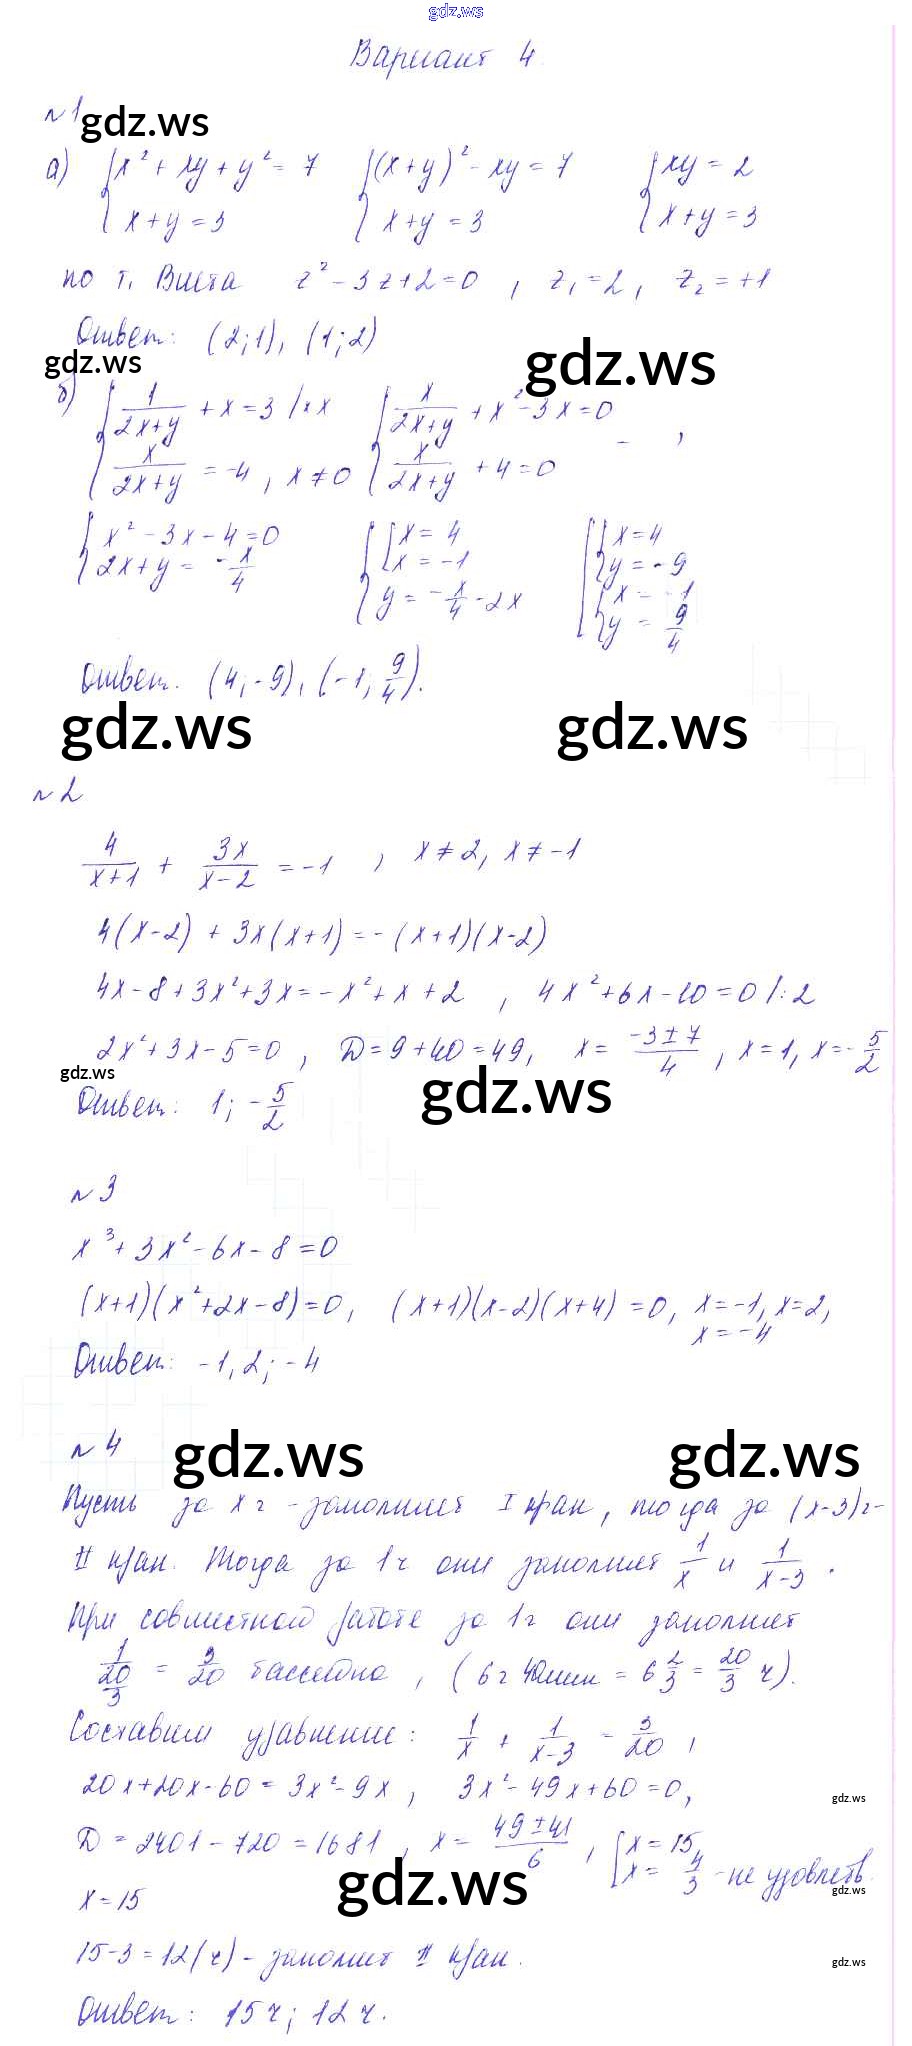 gdz.ws
Вариант 4.
№1 gdz.ws
а) { x² + xy + y² = 7 { (x+y)² - xy = 7 { xy = 2
x + y = 3 x + y = 3 x + y = 3
по т. Виета z² - 3z + 2 = 0 , z₁ = 2, z₂ = +1
Ответ: (2;1), (1;2)
gdz.ws gdz.ws
б) { 1/(2x+y) + x = 3 /·x { x/(2x+y) + x² - 3x = 0 ,
x/(2x+y) = -4 , x ≠ 0 x/(2x+y) + 4 = 0
{ x² - 3x - 4 = 0 { [ x = 4 [ { x = 4
2x + y = - x/4 x = -1 y = -9
y = - x/4 - 2x { x = -1
y = 9/4
Ответ. (4;-9), (-1; 9/4).
gdz.ws gdz.ws
№2
4/(x+1) + 3x/(x-2) = -1 , x ≠ 2, x ≠ -1
4(x-2) + 3x(x+1) = -(x+1)(x-2)
4x - 8 + 3x² + 3x = -x² + x + 2 , 4x² + 6x - 10 = 0 /:2
2x² + 3x - 5 = 0 , D = 9 + 40 = 49, x = (-3 ± 7)/4 , x = 1, x = - 5/2
gdz.ws gdz.ws
Ответ: 1; - 5/2
№3
x³ + 3x² - 6x - 8 = 0
(x+1)(x² + 2x - 8) = 0, (x+1)(x-2)(x+4) = 0, x = -1, x = 2,
x = -4
Ответ: -1, 2; -4
№4 gdz.ws gdz.ws
Пусть за x ч - заполнит I кран, тогда за (x-3)ч -
II кран. Тогда за 1ч они заполнят 1/x и 1/(x-3) .
При совместной работе за 1ч они заполнят
1/(20/3) = 3/20 бассейна , (6ч 40мин = 6 2/3 = 20/3 ч).
Составим уравнение: 1/x + 1/(x-3) = 3/20 ,
20x + 20x - 60 = 3x² - 9x , 3x² - 49x + 60 = 0,
gdz.ws
D = 2401 - 720 = 1681 , x = (49 ± 41)/6 , [ x = 15,
x = 4/3 - не удовлетв.
gdz.ws gdz.ws
x = 15
15 - 3 = 12 (ч) - заполнит II кран.
gdz.ws
Ответ: 15ч; 12ч.